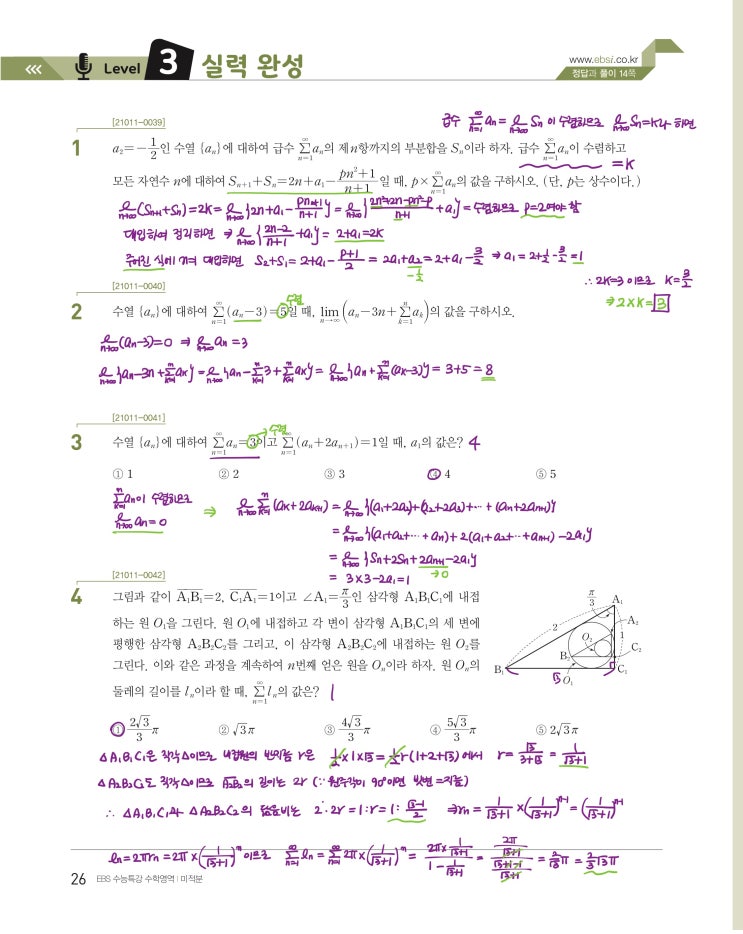 Level 3 실력 완성
www.ebsi.co.kr
정답과 풀이 14쪽
[21011-0039]
급수 $\sum_{n=1}^{\infty} a_n = \lim_{n\to\infty} S_n$ 이 수렴하므로 $\lim_{n\to\infty} S_n = K$라 하면
1 $a_2=-\frac{1}{2}$인 수열 $\{a_n\}$에 대하여 급수 $\sum_{n=1}^{\infty} a_n$의 제$n$항까지의 부분합을 $S_n$이라 하자. 급수 $\sum_{n=1}^{\infty} a_n$이 수렴하고
= K
모든 자연수 $n$에 대하여 $S_{n+1}+S_n=2n+a_1-\frac{pn^2+1}{n+1}$일 때, $p\times\sum_{n=1}^{\infty} a_n$의 값을 구하시오. (단, $p$는 상수이다.)
$\lim_{n\to\infty}(S_{n+1}+S_n)=2K=\lim_{n\to\infty}\{2n+a_1-\frac{pn^2+1}{n+1}\}=\lim_{n\to\infty}\{\frac{2n^2+2n-pn^2-1}{n+1}+a_1\}$ = 수렴하므로 p=2여야 함
대입하여 정리하면 ⇒ $\lim_{n\to\infty}\{\frac{2n-2}{n+1}+a_1\}=2+a_1=2K$
주어진 식에 n=1 대입하면 $S_2+S_1=2+a_1-\frac{p+1}{2}=2a_1+a_2=2+a_1-\frac{3}{2}$ ⇒ $a_1=2+\frac{1}{2}-\frac{3}{2}=1$
$-\frac{1}{2}$
∴ 2K=3 이므로 $K=\frac{3}{2}$
⇒ 2×K=3
[21011-0040]
수렴
2 수열 $\{a_n\}$에 대하여 $\sum_{n=1}^{\infty}(a_n-3)=5$일 때, $\lim_{n\to\infty}\left(a_n-3n+\sum_{k=1}^{n} a_k\right)$의 값을 구하시오.
$\lim_{n\to\infty}(a_n-3)=0$ ⇒ $\lim_{n\to\infty} a_n=3$
$\lim_{n\to\infty}\{a_n-3n+\sum_{k=1}^{n}a_k\}=\lim_{n\to\infty}\{a_n-\sum_{k=1}^{n}3+\sum_{k=1}^{n}a_k\}=\lim_{n\to\infty}\{a_n+\sum_{k=1}^{n}(a_k-3)\}=3+5=8$
[21011-0041]
수렴
3 수열 $\{a_n\}$에 대하여 $\sum_{n=1}^{\infty} a_n=3$이고 $\sum_{n=1}^{\infty}(a_n+2a_{n+1})=1$일 때, $a_1$의 값은? 4
① 1 ② 2 ③ 3 ④ 4 ⑤ 5
$\sum_{k=1}^{n} a_n$이 수렴하므로 $\lim_{n\to\infty} a_n=0$ ⇒ $\lim_{n\to\infty}\sum_{k=1}^{n}(a_k+2a_{k+1})=\lim_{n\to\infty}\{(a_1+2a_2)+(a_2+2a_3)+\cdots+(a_n+2a_{n+1})\}$
$=\lim_{n\to\infty}\{(a_1+a_2+\cdots+a_n)+2(a_1+a_2+\cdots+a_{n+1})-2a_1\}$
$=\lim_{n\to\infty}\{S_n+2S_n+2a_{n+1}-2a_1\}$
→0
$=3\times3-2a_1=1$
[21011-0042]
4 그림과 같이 $\overline{A_1B_1}=2$, $\overline{C_1A_1}=1$이고 $\angle A_1=\frac{\pi}{3}$인 삼각형 $A_1B_1C_1$에 내접
하는 원 $O_1$을 그린다. 원 $O_1$에 내접하고 각 변이 삼각형 $A_1B_1C_1$의 세 변에
평행한 삼각형 $A_2B_2C_2$를 그리고, 이 삼각형 $A_2B_2C_2$에 내접하는 원 $O_2$를
그린다. 이와 같은 과정을 계속하여 $n$번째 얻은 원을 $O_n$이라 하자. 원 $O_n$의
둘레의 길이를 $l_n$이라 할 때, $\sum_{n=1}^{\infty} l_n$의 값은? 1
$\frac{\pi}{3}$ A₁
2 A₂
O₂ 1
B₂ C₂
B₁ √3 O₁ C₁
① $\frac{2\sqrt{3}}{3}\pi$ ② $\sqrt{3}\pi$ ③ $\frac{4\sqrt{3}}{3}\pi$ ④ $\frac{5\sqrt{3}}{3}\pi$ ⑤ $2\sqrt{3}\pi$
△A₁B₁C₁은 직각△이므로 내접원의 반지름 r은 $\frac{1}{2}\times1\times\sqrt{3}=\frac{1}{2}r(1+2+\sqrt{3})$ 에서 $r=\frac{\sqrt{3}}{3+\sqrt{3}}=\frac{1}{\sqrt{3}+1}$
△A₂B₂C₂도 직각△이므로 $\overline{A_2B_2}$의 길이는 2r (∵ 원주각이 90°이면 빗변=지름)
∴ △A₁B₁C₁와 △A₂B₂C₂의 닮음비는 $2:2r=1:r=1:\frac{\sqrt{3}-1}{2}$ ⇒ $r_n=\frac{1}{\sqrt{3}+1}\times\left(\frac{1}{\sqrt{3}+1}\right)^{n-1}=\left(\frac{1}{\sqrt{3}+1}\right)^{n}$
$l_n=2\pi r_n=2\pi\times\left(\frac{1}{\sqrt{3}+1}\right)^n$이므로 $\sum_{n=1}^{\infty} l_n=\sum_{n=1}^{\infty}2\pi\times\left(\frac{1}{\sqrt{3}+1}\right)^n=\frac{2\pi\times\frac{1}{\sqrt{3}+1}}{1-\frac{1}{\sqrt{3}+1}}=\frac{\frac{2\pi}{\sqrt{3}+1}}{\frac{\sqrt{3}+1-1}{\sqrt{3}+1}}=\frac{2}{\sqrt{3}}\pi=\frac{2}{3}\sqrt{3}\pi$
26 EBS 수능특강 수학영역 | 미적분